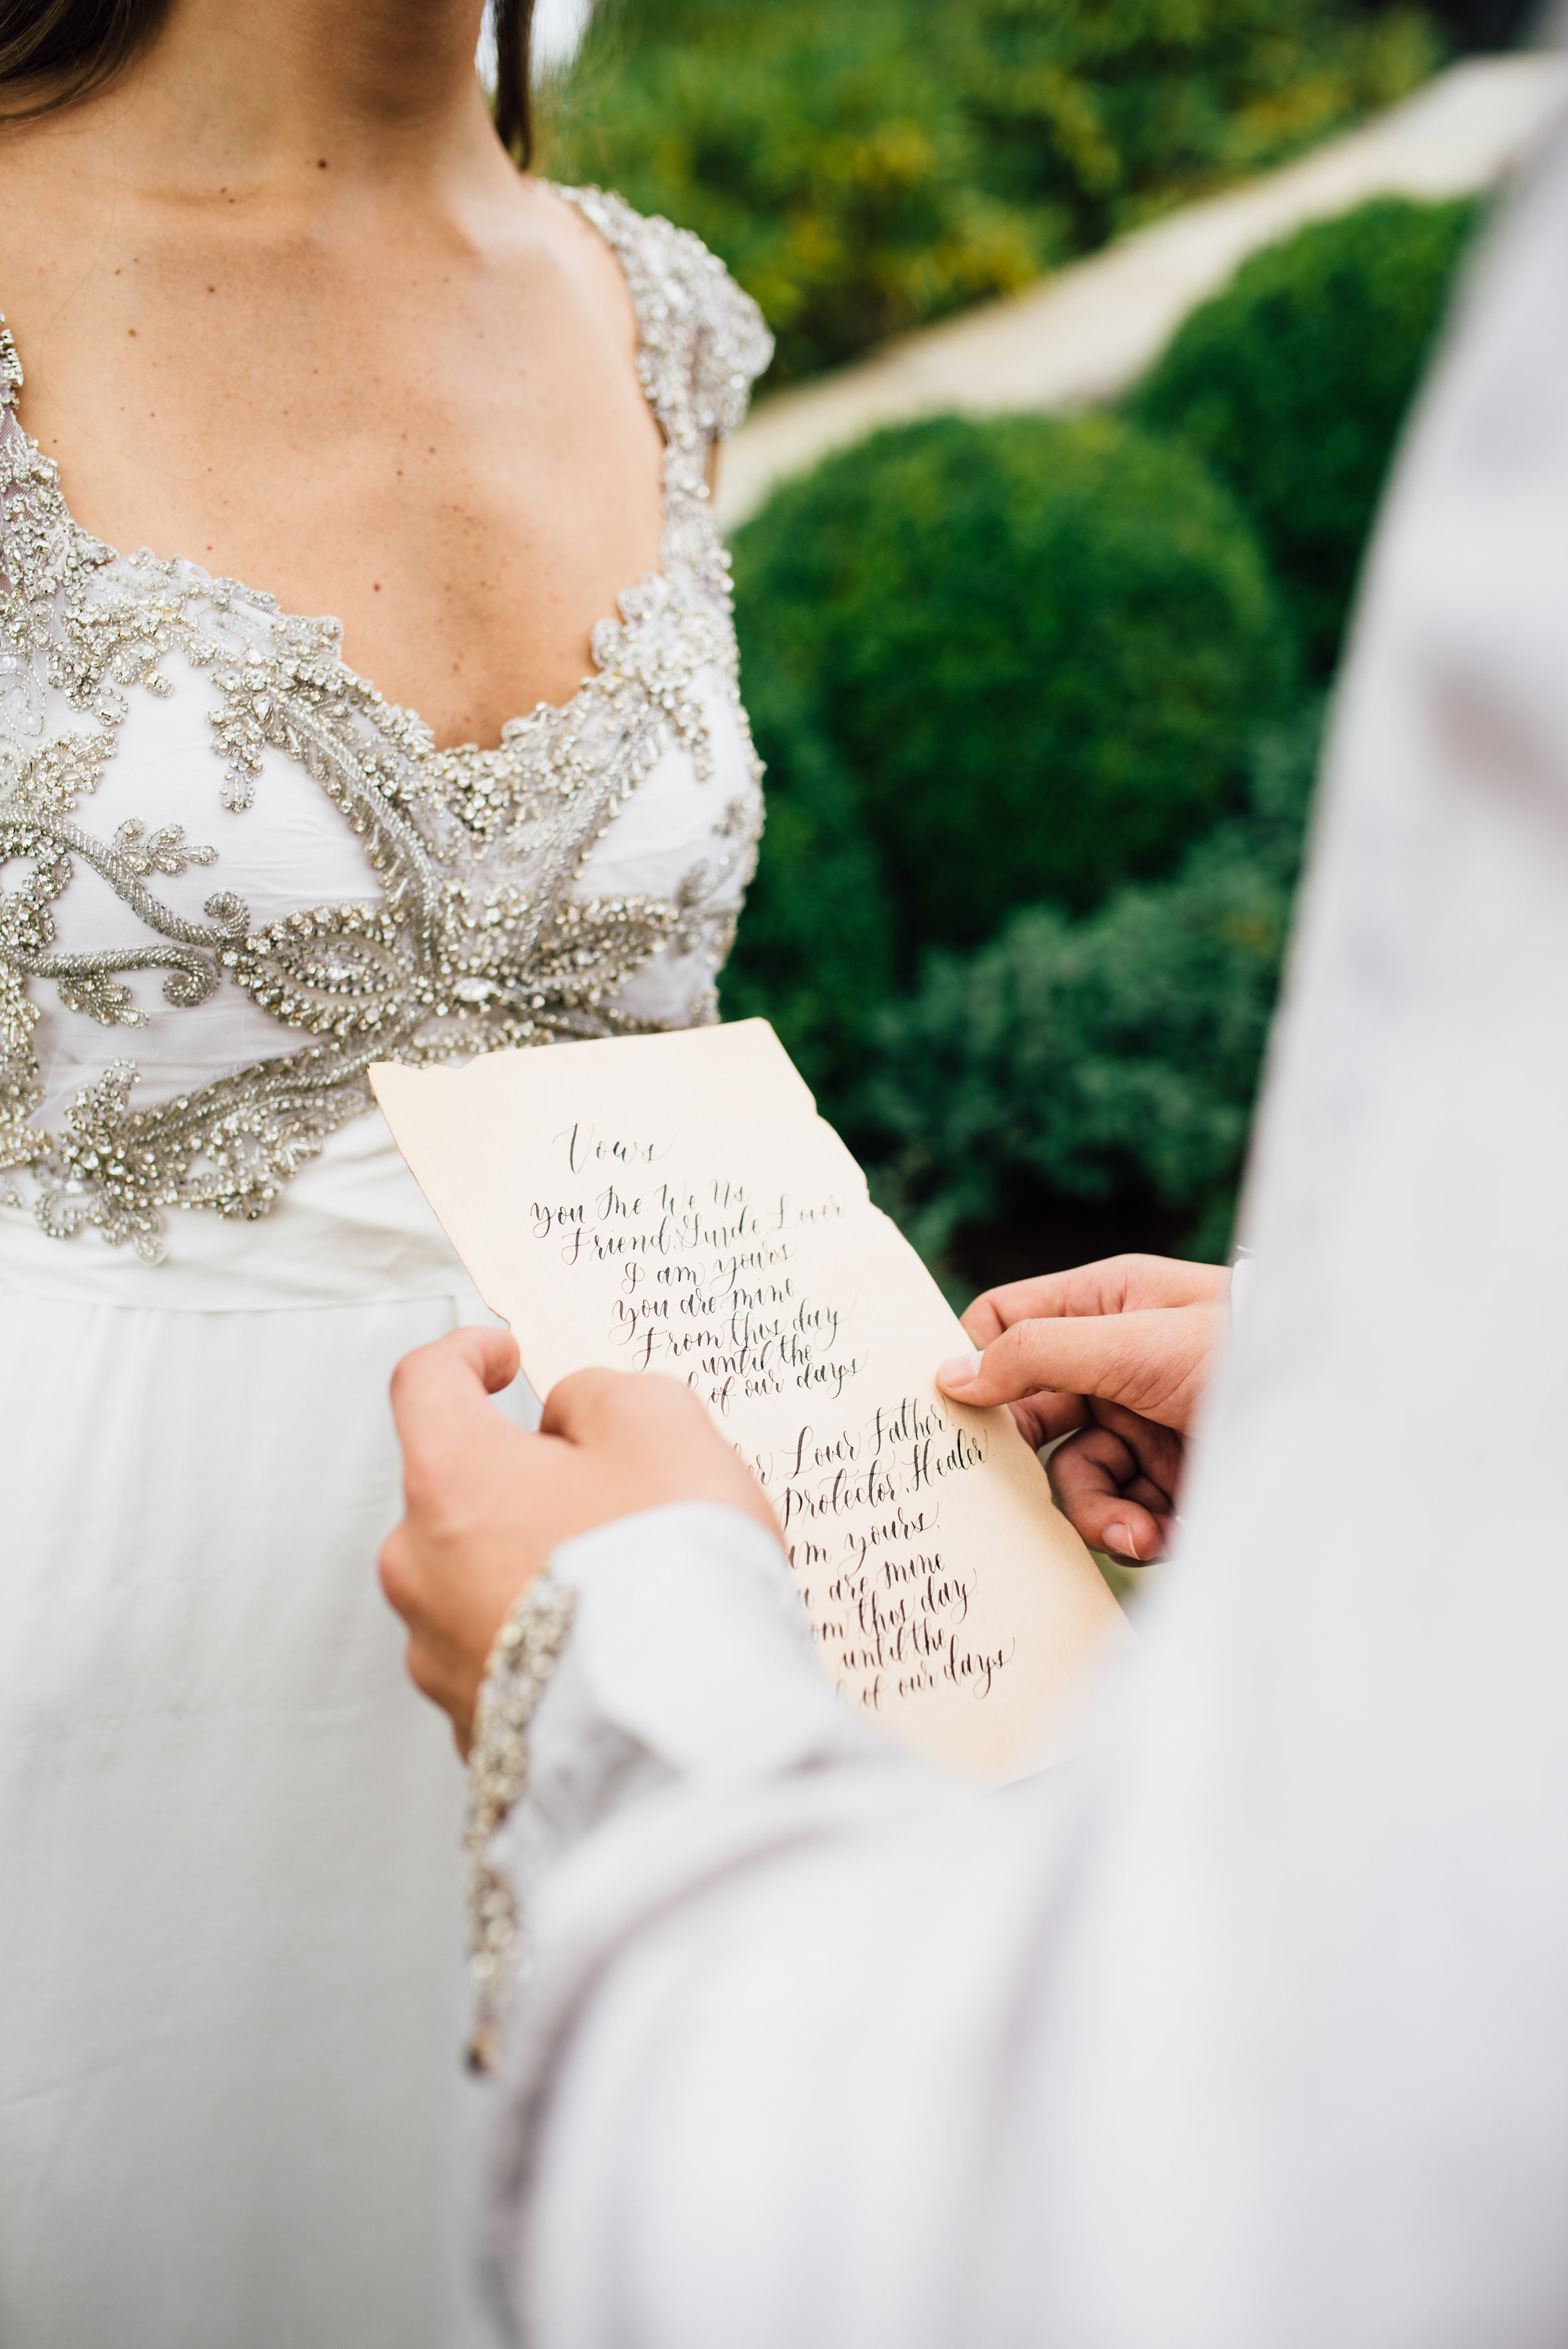 Vows
you Me We Us
Friend. Guide. Lover
I am yours
you are mine
From this day
until the
of our days
Lover Father
Protector. Healer.
yours.
are mine
this day
until the
of our days